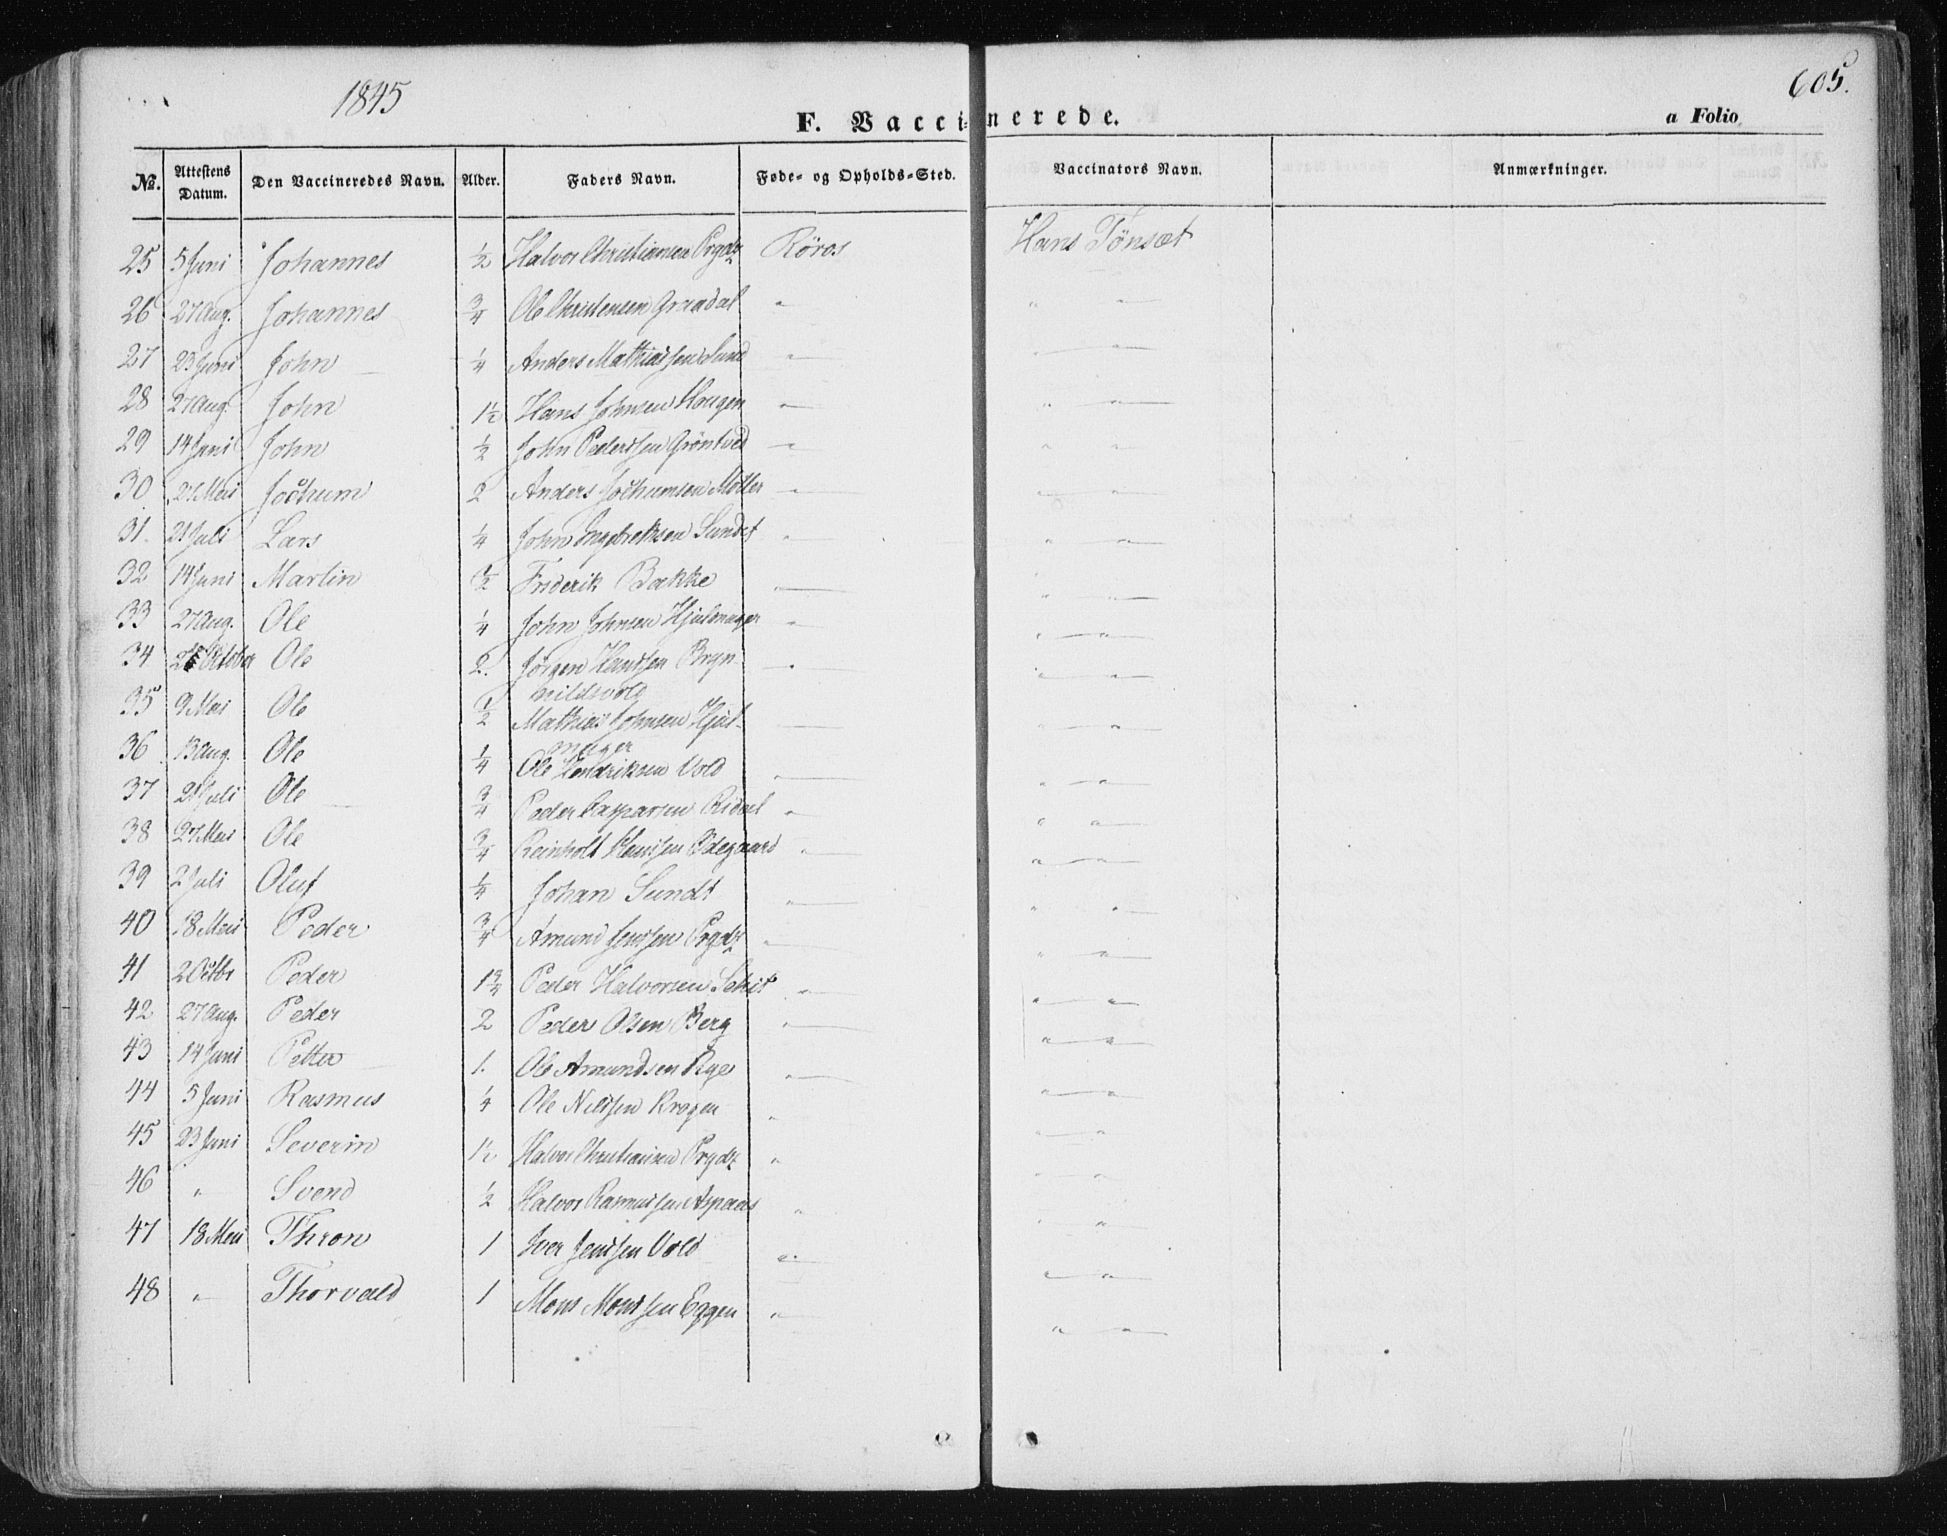 1845
605.
F. Vaccinerede.
a Folio
No. Attestens Datum. Den Vaccineredes Navn. Alder. Faders Navn. Føde- og Opholds-Sted. Vaccinators Navn. Anmærkninger.
25 5 Juni Johannes 1/2 Halvor Christiansen Prydz Røros Hans Tönsæt
26 27 Aug. Johannes 3/4 Ole Christensen Graadal " " "
27 23 Juni John 1/4 Anders Mathiassen Sund " " "
28 27 Aug. John 1 1/2 Hans Johnsen Haugen " " "
29 14 Juni John 1/2 John Pederssen Gröntved " " "
30 27 Mai Jochum 2 Anders Jochumsen Möller " " "
31. 21 Juli Lars 1/4 John Ingebrektsen Sundt " " "
32 14 Juni Martin 1/2 Friderik Bakke " " "
33 27 Aug. Ole 1/4 John Johnsen Hjulmager " " "
34 October Ole 2. Jörgen Hanssen Bryn- " " "
hildsvold
35 9 Mai Ole 1/2 Mathias Johnsen Hjul- " " "
mager
36 13 Aug. Ole 1/4 Ole Hendriksen Vold " " "
37 21 Juli Ole 3/4 Peder Casparsen Risdal " " "
38 27 Mai Ole 3/4 Reinholt Hanssen Ödegaard " " "
39 2 Juli Oluf 1/4 Johan Sundt " " "
40 18 Mai Peder 3/4 Amund Jenssen Prydz " " "
41 2 Octbr Peder 1 3/4 Peder Halvorsen " " "
42 27 Aug. Peder 2 Peder Olsen Berg " " "
43 14 Juni Petter 1. Ole Amundsen Rye " " "
44 5 Juni Rasmus 1/4 Ole Nilssen Krogen " " "
45 23 Juni Severin 1 1/2 Halvor Christiansen Prydz " " "
46 " Svend 1/2 Halvor Rasmussen Aspaas " " "
47 18 Mai Thron 1 Iver Jenssen Vold " " "
48 " Thorvald 1 Mons Monssen Eggen " " "